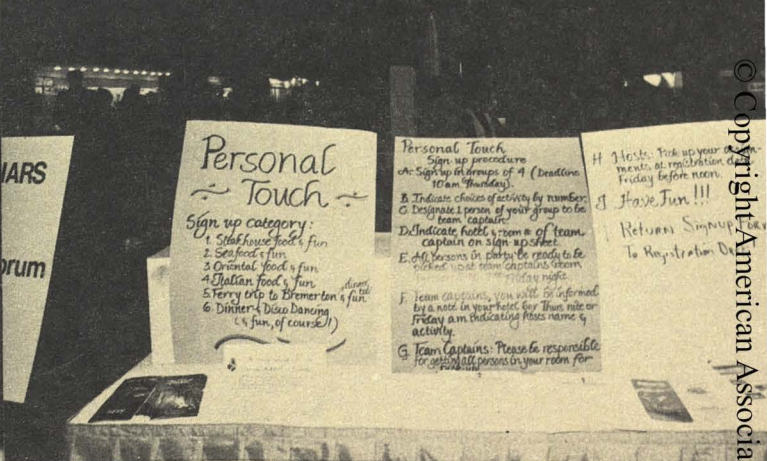 IARS
orum
Personal
Touch
Sign up category:
1. Steakhouse food & fun
2. Seafood & fun
3. Oriental food & fun
4. Italian food & fun
5. Ferry trip to Bremerton & fun
6. Dinner & Disco Dancing
(& fun, of course!)
Personal Touch
Sign up procedure
A. Sign up in groups of 4 (Deadline
10 am Thursday).
B. Indicate choices of activity by number.
C. Designate 1 person of your group to be
team captain.
D. Indicate hotel & room # of team
captain on sign up sheet.
E. All persons in party be ready to be
picked up at team captains room
Friday night
F. Team captains, you will be informed
by a note in your hotel box Thurs nite or
Friday am indicating hosts name &
activity.
G. Team Captains: Please be responsible
for getting all persons in your room for
H. Hosts: Pick up your
ments at registration
Friday before noon.
Have Fun!!!
Return Signup For
To Registration
© Copyright American Associa